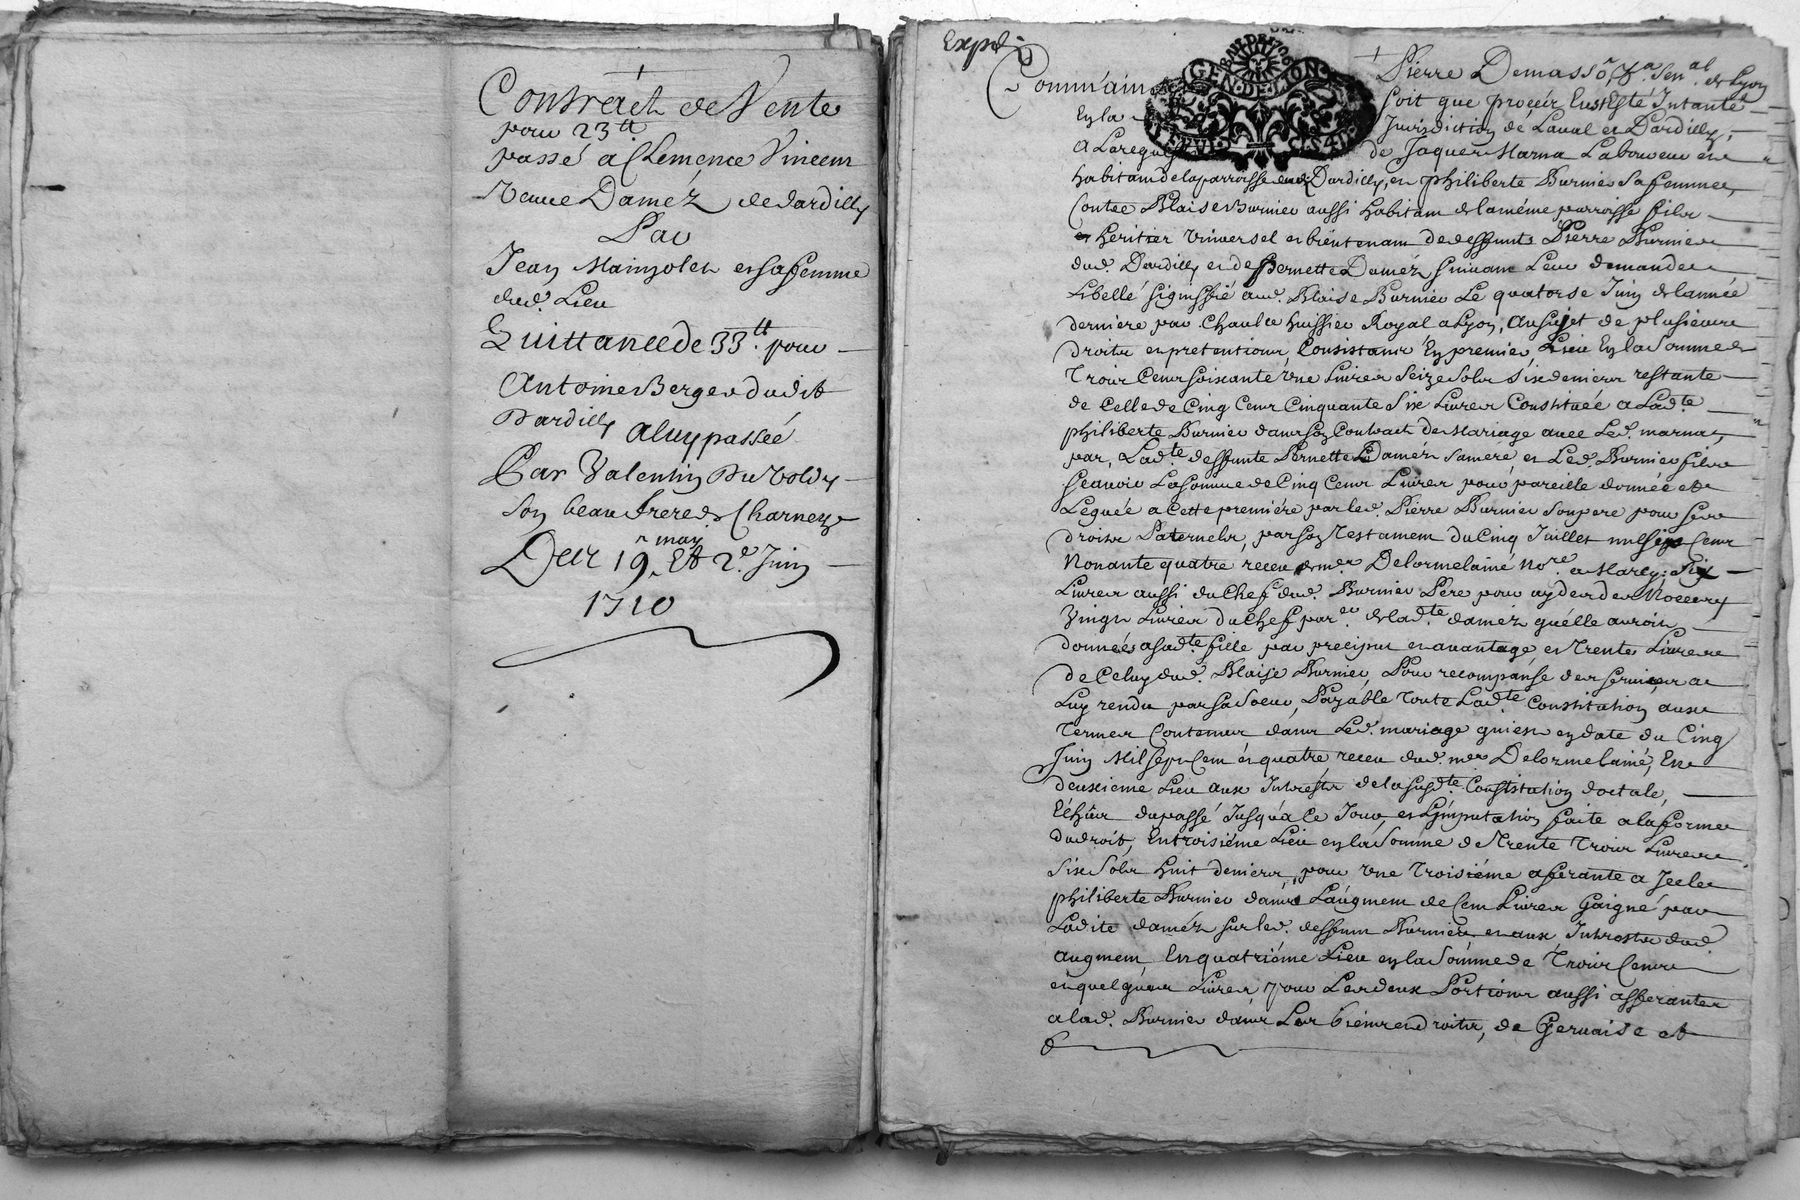 Contract de Vente
pour 23tt.
passé a Clemence Vincent
Veuve Daméz de dardilly
Par
Jean Mainjolet et sa femme
dud. Lieu
Quittance de 33tt. pour
Antoine Berger dudit
Dardilly a luy passéé
Par Valentin
son beau frere de Charnay
Des 19 may Et 2e. Juin
1710
Expé
GEN. DE LION
Comm'ain Pierre Demasso, Sen.al de Lyon
soit que procéz Eust Esté Intanté
En la Jurisdiction de Laval et Dardilly,
A La requeste de Jaques Marna Laboureur
habitant de la parroisse dud. Dardilly, et philiberte Burnier Sa femme,
Contre Blaise Burnier aussi habitant de la méme parroisse fils
et heritier Universel et bientenant de deffunts Pierre Burnier
dud. Dardilly et de Pernette Daméz suivant Leur demande
Libellé signiffié aud. Blaise Burnier Le quatorse Juin de l'année
derniere par Chaulce hussier Royal a Lyon, Au sujet de plusieurs
droits et pretentions, Consistants En premier Lieu En la Somme de
Trois Cens soixante Une Livres Seize Sols Six deniers restante
de Celle de Cinq Cens Cinquante Six Livres Constituée a Lad.te
philiberte Burnier dans son Contract de Mariage avec Led. marna,
par, Lad.te deffunte Pernette Daméz sa mére, et Led. Burnier fils
sçavoir La somme de Cinq Cens Livres pour pareille donnée et
Leguée a Cette premiére par led. Pierre Burnier son pere pour ses
droits Paternels, par son Testament du Cinq Juillet mil six Cens
Nonante quatre receu de me. Delorme l'ainé No.re a Marcy; Six
Livres aussi du Chef dud. Burnier Pere pour ayder des Nocces
Vingt Livres du Chef de lad.te daméz qu'elle auroit
données a sad.te fille par preciput et avantage, et Trente Livres
de Celuy dud. Blaise Burnier, Pour recompanse des services a
Luy rendu par sa Soeur, Payable Toute Lad.te Constitution aux
Termes Contenus dans Led. mariage qui est en date du Cinq
Juin Mil sept Cent et quatre, receu dud. me. Delorme l'ainé, En
deuxieme Lieu aux Intrests de la susd.te Constitution doctale,
Echûs du passé Jusqu'a Ce Jour, et L'imputation faite a la forme
du droit, En troisiéme Lieu en la Somme de Trente Trois Livres
Six Sols huit deniers, pour Une Troisiéme aferante a Jcelle
philiberte Burnier dans L'augment de Cent Livres Gaigné par
Ladite daméz sur led. deffunt Burnier et aux Intrests dud.
augment En quatriéme Lieu en la Somme de Trois Cens
et quelques Livres pour Les deux Portions aussi afferantes
a lad. Burnier dans Les biens et droits, de Gervaise et